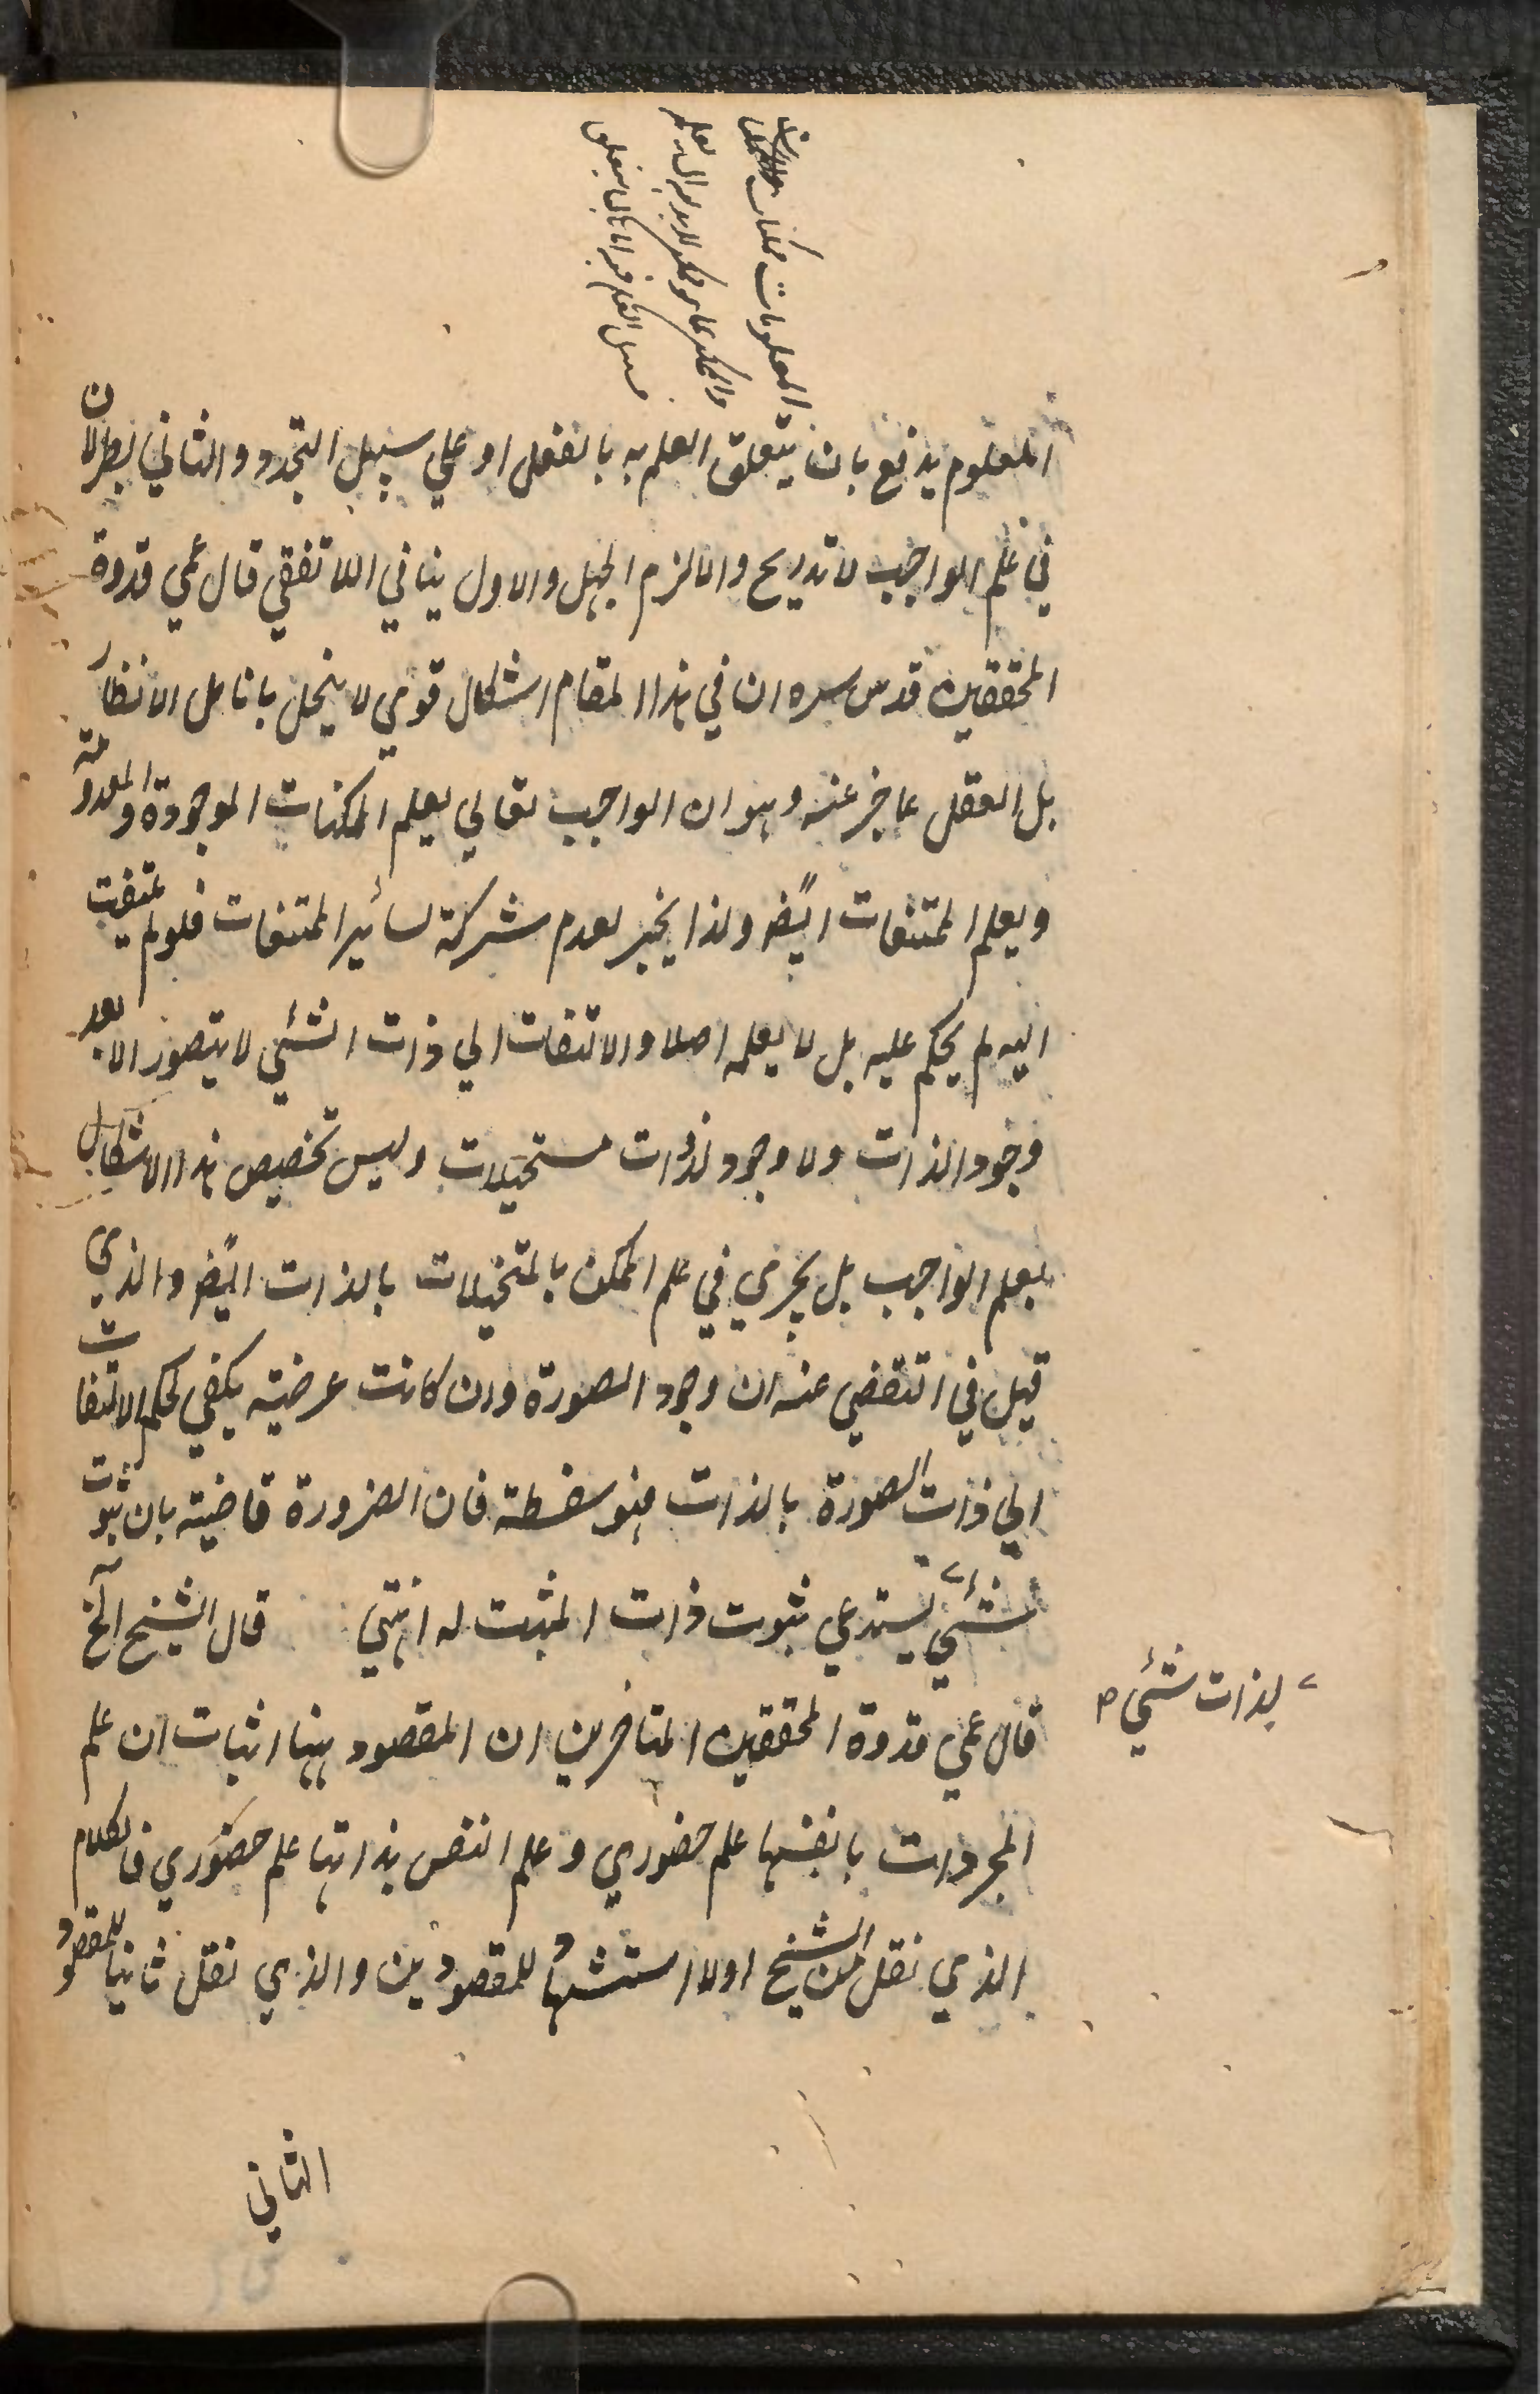 المعلوم يدفع بان يتعلق العلم به بالفعل او علي سبيل التجدد والثاني بط لان
في علم الواجب لا تدريج والا لزم الجهل والاول ينافي اللا تقفي قال عمي قدوة
المحققين قدس سره ان في هذا المقام اشكال قوي لا ينحل بانامل الانظار
بل العقل عاجز عنه وهو ان الواجب تعالي يعلم الممكنات الموجودة والمعدومة
ويعلم الممتنعات ايضا ولذا يخبر بعدم شركة لسائير الممتنعات فلو لم يلتفت
اليه لم يحكم عليه بل لا يعلمه اصلا والالتفات الي ذات الشئي لا يتصور الا بعد
وجود الذات ولا وجود لذات مستحيلات وليس تخصيص هذا الاشكال
بعلم الواجب بل يجري في علم الممكن بالمستحيلات بالذات ايضا والذي
قيل في التفصي عنه ان وجود الصورة وان كانت عرضية يكفي لحكم الالتفات
الي ذات الصورة بالذات فهو سفسطة فان الضرورة قاضية بان ثبوت
شئي يستدعي ثبوت ذات المثبت له انتهي قال الشيخ الخ
لذات شئي ص
قال عمي قدوة المحققين المتاخرين ان المقصود ههنا اثبات ان علم
المجردات بانفسها علم حضوري وعلم النفس بذاتها علم حضوري فالكلام
الذي نقل من الشيخ اولا استشهاد للمقصودين والذي نقل ثانيا للمقصود
الثاني